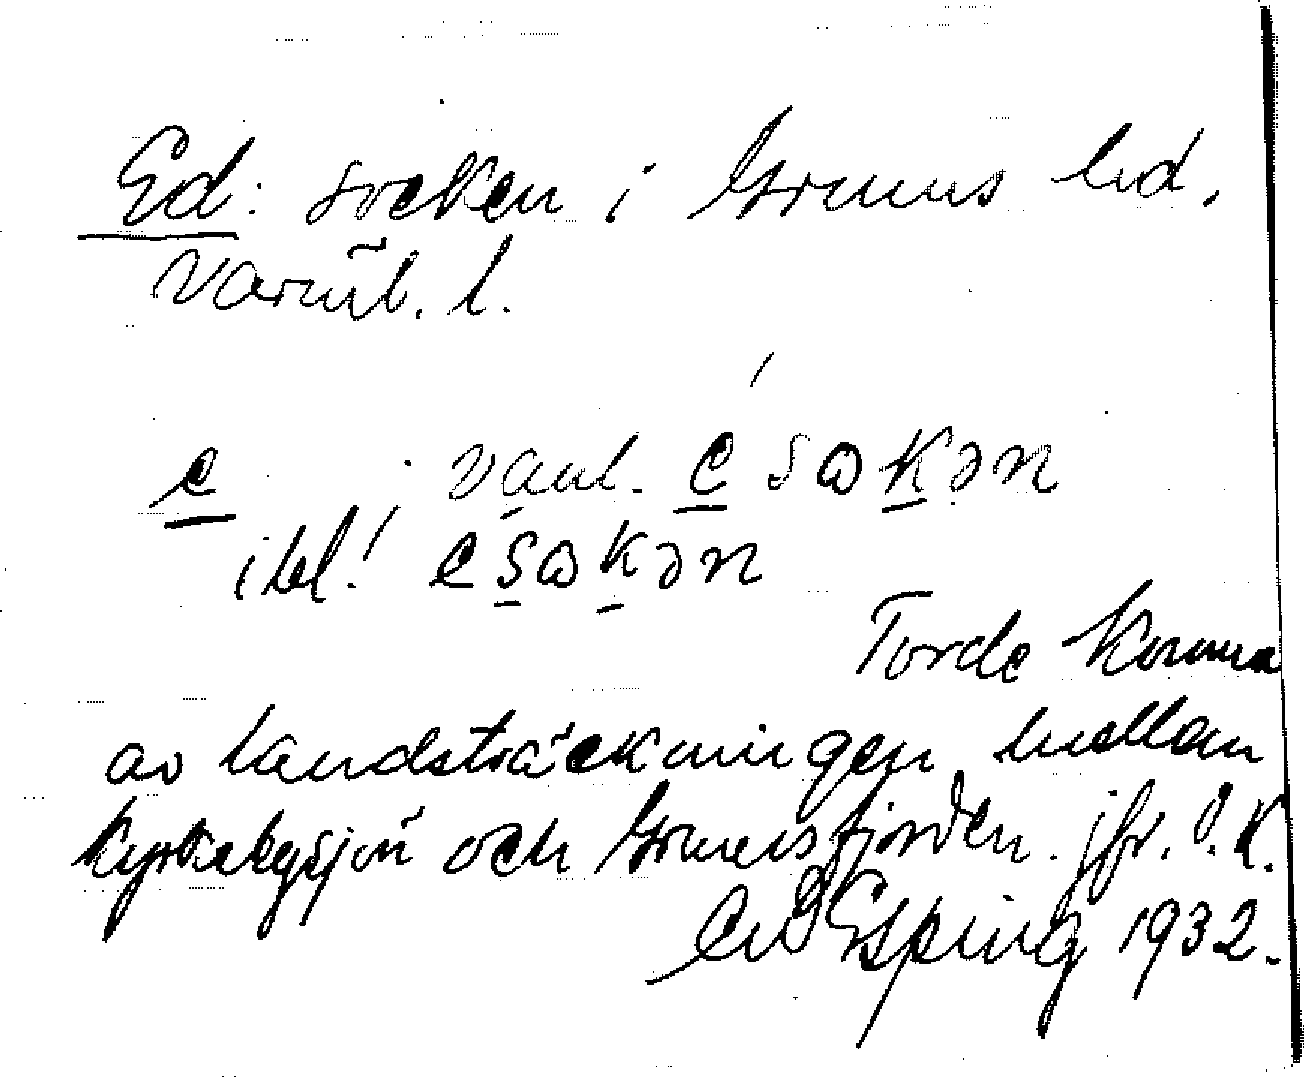 Ed: socken i Grums hd.
Värml. l.
e ; vanl. e sωkən
ibl. e sωkən
Torde komma
av landsträckningen mellan
Kyrkebysjön och Grumsfjorden. jfr. Ö. K.
Esping 1932.